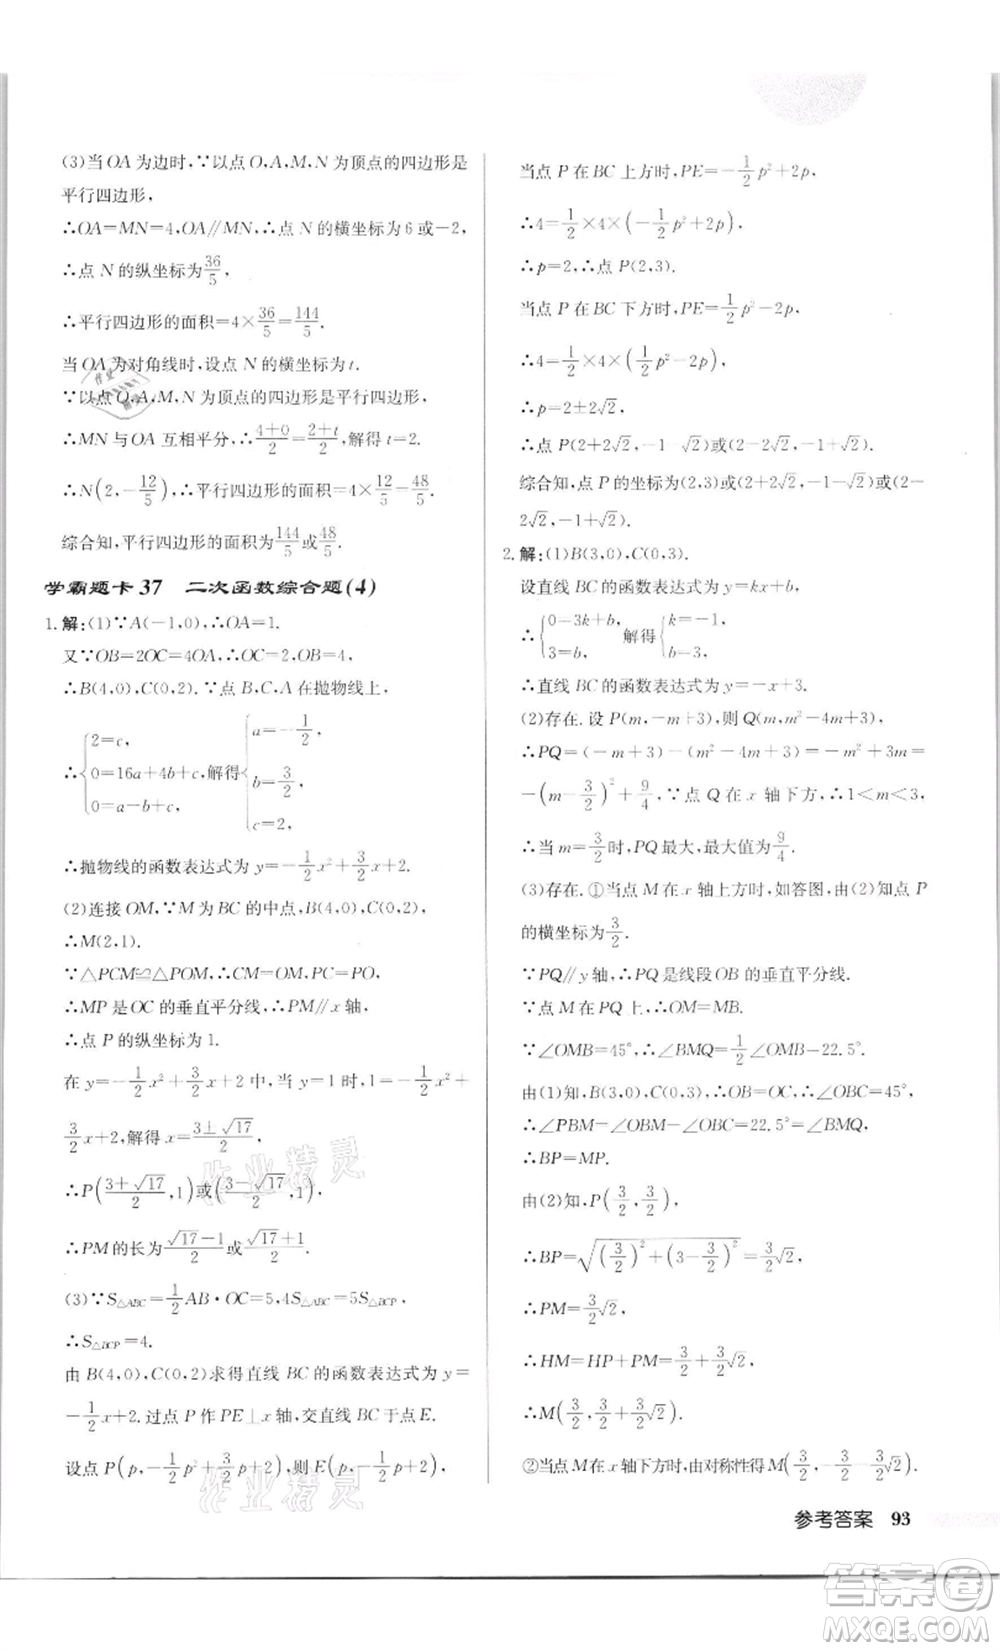 (3)当OA为边时,∵以点O,A,M,N为顶点的四边形是
平行四边形,
∴OA=MN=4,OA∥MN,∴点N的横坐标为6或-2,
∴点N的纵坐标为36/5,
∴平行四边形的面积=4×36/5=144/5.
当OA为对角线时,设点N的横坐标为t.
∵以点O,A,M,N为顶点的四边形是平行四边形,
∴MN与OA互相平分,∴(4+0)/2=(2+t)/2,解得t=2.
∴N(2,-12/5),∴平行四边形的面积=4×12/5=48/5.
综合知,平行四边形的面积为144/5或48/5.
学霸题卡37 二次函数综合题(4)
1.解:(1)∵A(-1,0),∴OA=1.
又∵OB=2OC=4OA,∴OC=2,OB=4,
∴B(4,0),C(0,2).∵点B,C,A在抛物线上,
∴{2=c, 0=16a+4b+c, 0=a-b+c, 解得{a=-1/2, b=3/2, c=2,
∴抛物线的函数表达式为y=-1/2x²+3/2x+2.
(2)连接OM,∵M为BC的中点,B(4,0),C(0,2),
∴M(2,1).
∵△PCM≌△POM,∴CM=OM,PC=PO,
∴MP是OC的垂直平分线,∴PM∥x轴,
∴点P的纵坐标为1.
在y=-1/2x²+3/2x+2中,当y=1时,1=-1/2x²+
3/2x+2,解得x=(3±√17)/2,
∴P((3+√17)/2,1)或((3-√17)/2,1),
∴PM的长为(√17-1)/2或(√17+1)/2.
(3)∵S△ABC=1/2AB·OC=5,4S△ABC=5S△BCP,
∴S△BCP=4.
由B(4,0),C(0,2)求得直线BC的函数表达式为y=
-1/2x+2.过点P作PE⊥x轴,交直线BC于点E.
设点P(p,-1/2p²+3/2p+2),则E(p,-1/2p+2).
当点P在BC上方时,PE=-1/2p²+2p,
∴4=1/2×4×(-1/2p²+2p),
∴p=2,∴点P(2,3).
当点P在BC下方时,PE=1/2p²-2p,
∴4=1/2×4×(1/2p²-2p),
∴p=2±2√2,
∴点P(2+2√2,-1-√2)或(2-2√2,-1+√2).
综合知,点P的坐标为(2,3)或(2+2√2,-1-√2)或(2-
2√2,-1+√2).
2.解:(1)B(3,0),C(0,3).
设直线BC的函数表达式为y=kx+b,
∴{0=3k+b, 3=b, 解得{k=-1, b=3,
∴直线BC的函数表达式为y=-x+3.
(2)存在.设P(m,-m+3),则Q(m,m²-4m+3),
∴PQ=(-m+3)-(m²-4m+3)=-m²+3m=
-(m-3/2)²+9/4.∵点Q在x轴下方,∴1<m<3,
∴当m=3/2时,PQ最大,最大值为9/4.
(3)存在.①当点M在x轴上方时,如答图,由(2)知点P
的横坐标为3/2.
∵PQ∥y轴,∴PQ是线段OB的垂直平分线.
∵点M在PQ上,∴OM=MB.
∵∠OMB=45°,∴∠BMP=1/2∠OMB=22.5°.
由(1)知,B(3,0),C(0,3),∴OB=OC,∴∠OBC=45°,
∴∠PBM=∠OBC-∠BMP=22.5°=∠BMP,
∴BP=MP.
由(2)知,P(3/2,3/2),
∴BP=√((3/2)²+(3-3/2)²)=3/2√2,
∴PM=3/2√2,
∴HM=HP+PM=3/2+3/2√2,
∴M(3/2,3/2+3/2√2).
②当点M在x轴下方时,由对称性得M(3/2,-3/2-3/2√2).
作业精灵
作业精灵
参考答案 93
答案圈
MXQE.COM